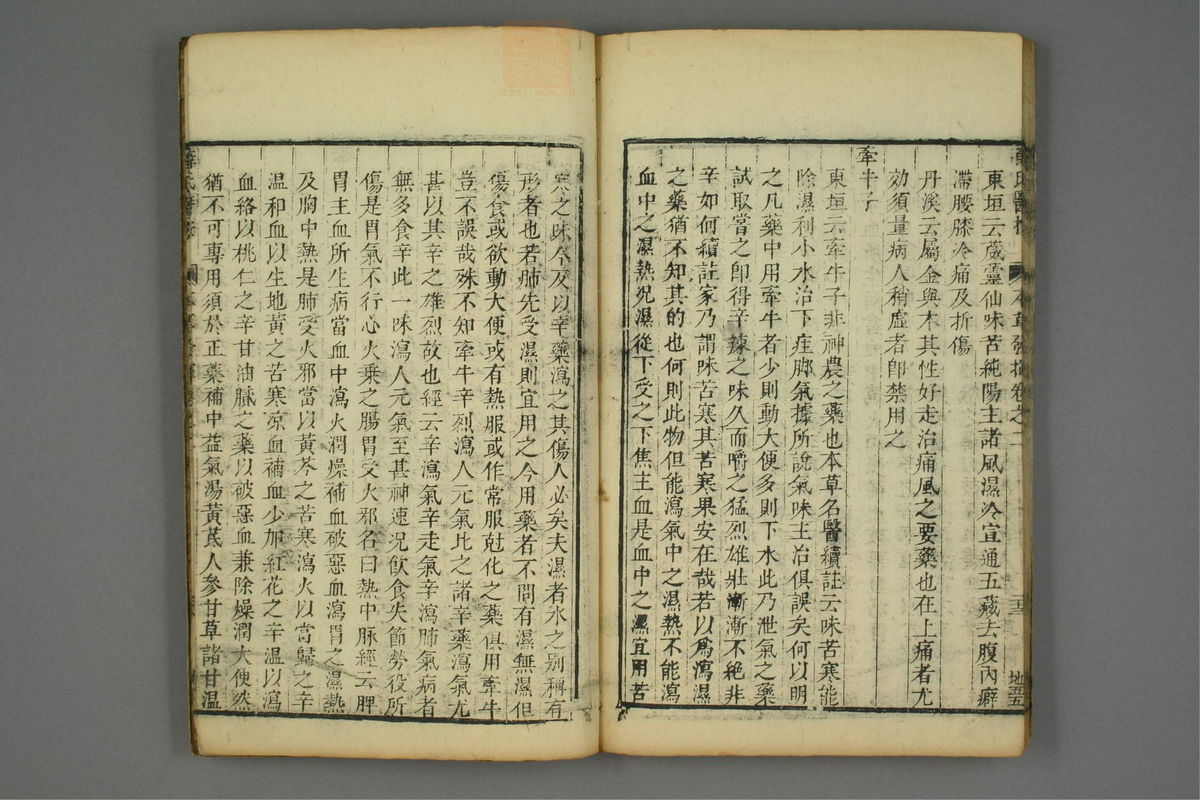 東垣云葳靈仙味苦純陽主諸風濕冷宣通五藏去腹內癖
滯腰膝冷痛及折傷
丹溪云屬金與木其性好走治痛風之要藥也在上痛者尤
効須量病人稍虛者卽禁用之
牽牛子
東垣云牽牛子非神農之藥也本草名醫續註云味苦寒能
除濕利小水治下疰脚氣據所說氣味主治俱誤矣何以明
之凡藥中用牽牛者少則動大便多則下水此乃泄氣之藥
試取嘗之卽得辛辣之味久而嚼之猛烈雄壯漸漸不絕非
辛如何續註家乃謂味苦寒其苦寒果安在哉若以爲瀉濕
之藥猶不知其的也何則此物但能瀉氣中之濕熱不能瀉
血中之濕熱况濕從下受之下焦主血是血中之濕宜用苦
寒之味今反以辛藥瀉之其傷人必矣夫濕者水之別稱有
形者也若肺先受濕則宜用之今用藥者不問有濕無濕但
傷食或欲動大便或有熱服或作常服尅化之藥俱用牽牛
豈不誤哉殊不知牽牛辛烈瀉人元氣比之諸辛藥瀉氣尤
甚以其辛之雄烈故也經云辛瀉氣辛走氣辛瀉肺氣病者
無多食辛此一味瀉人元氣至甚神速况飮食失節勞役所
傷是胃氣不行心火乘之腸胃受火邪名曰熱中脉經云脾
胃主血所生病當血中瀉火潤燥補血破惡血瀉胃之濕熱
及胸中熱是肺受火邪當以黃芩之苦寒瀉火以當歸之辛
溫和血以生地黃之苦寒凉血補血少加紅花之辛溫以瀉
血絡以桃仁之辛甘油膩之藥以破惡血兼除燥潤大便然
猶不可專用須於正藥補中益氣湯黃芪人參甘草諸甘溫